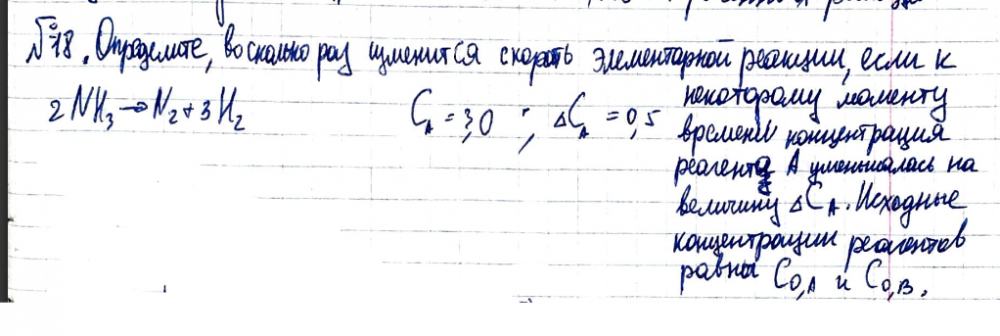 №18. Определите, во сколько раз изменится скорость элементарной реакции, если к
2NH₃→N₂+3H₂ C_A = 3,0 ; ΔC_A = 0,5 некоторому моменту
времени концентрация
реагента A уменьшалась на
величину ΔC_A. Исходные
концентрации реагентов
равны C_{0,A} и C_{0,B}.